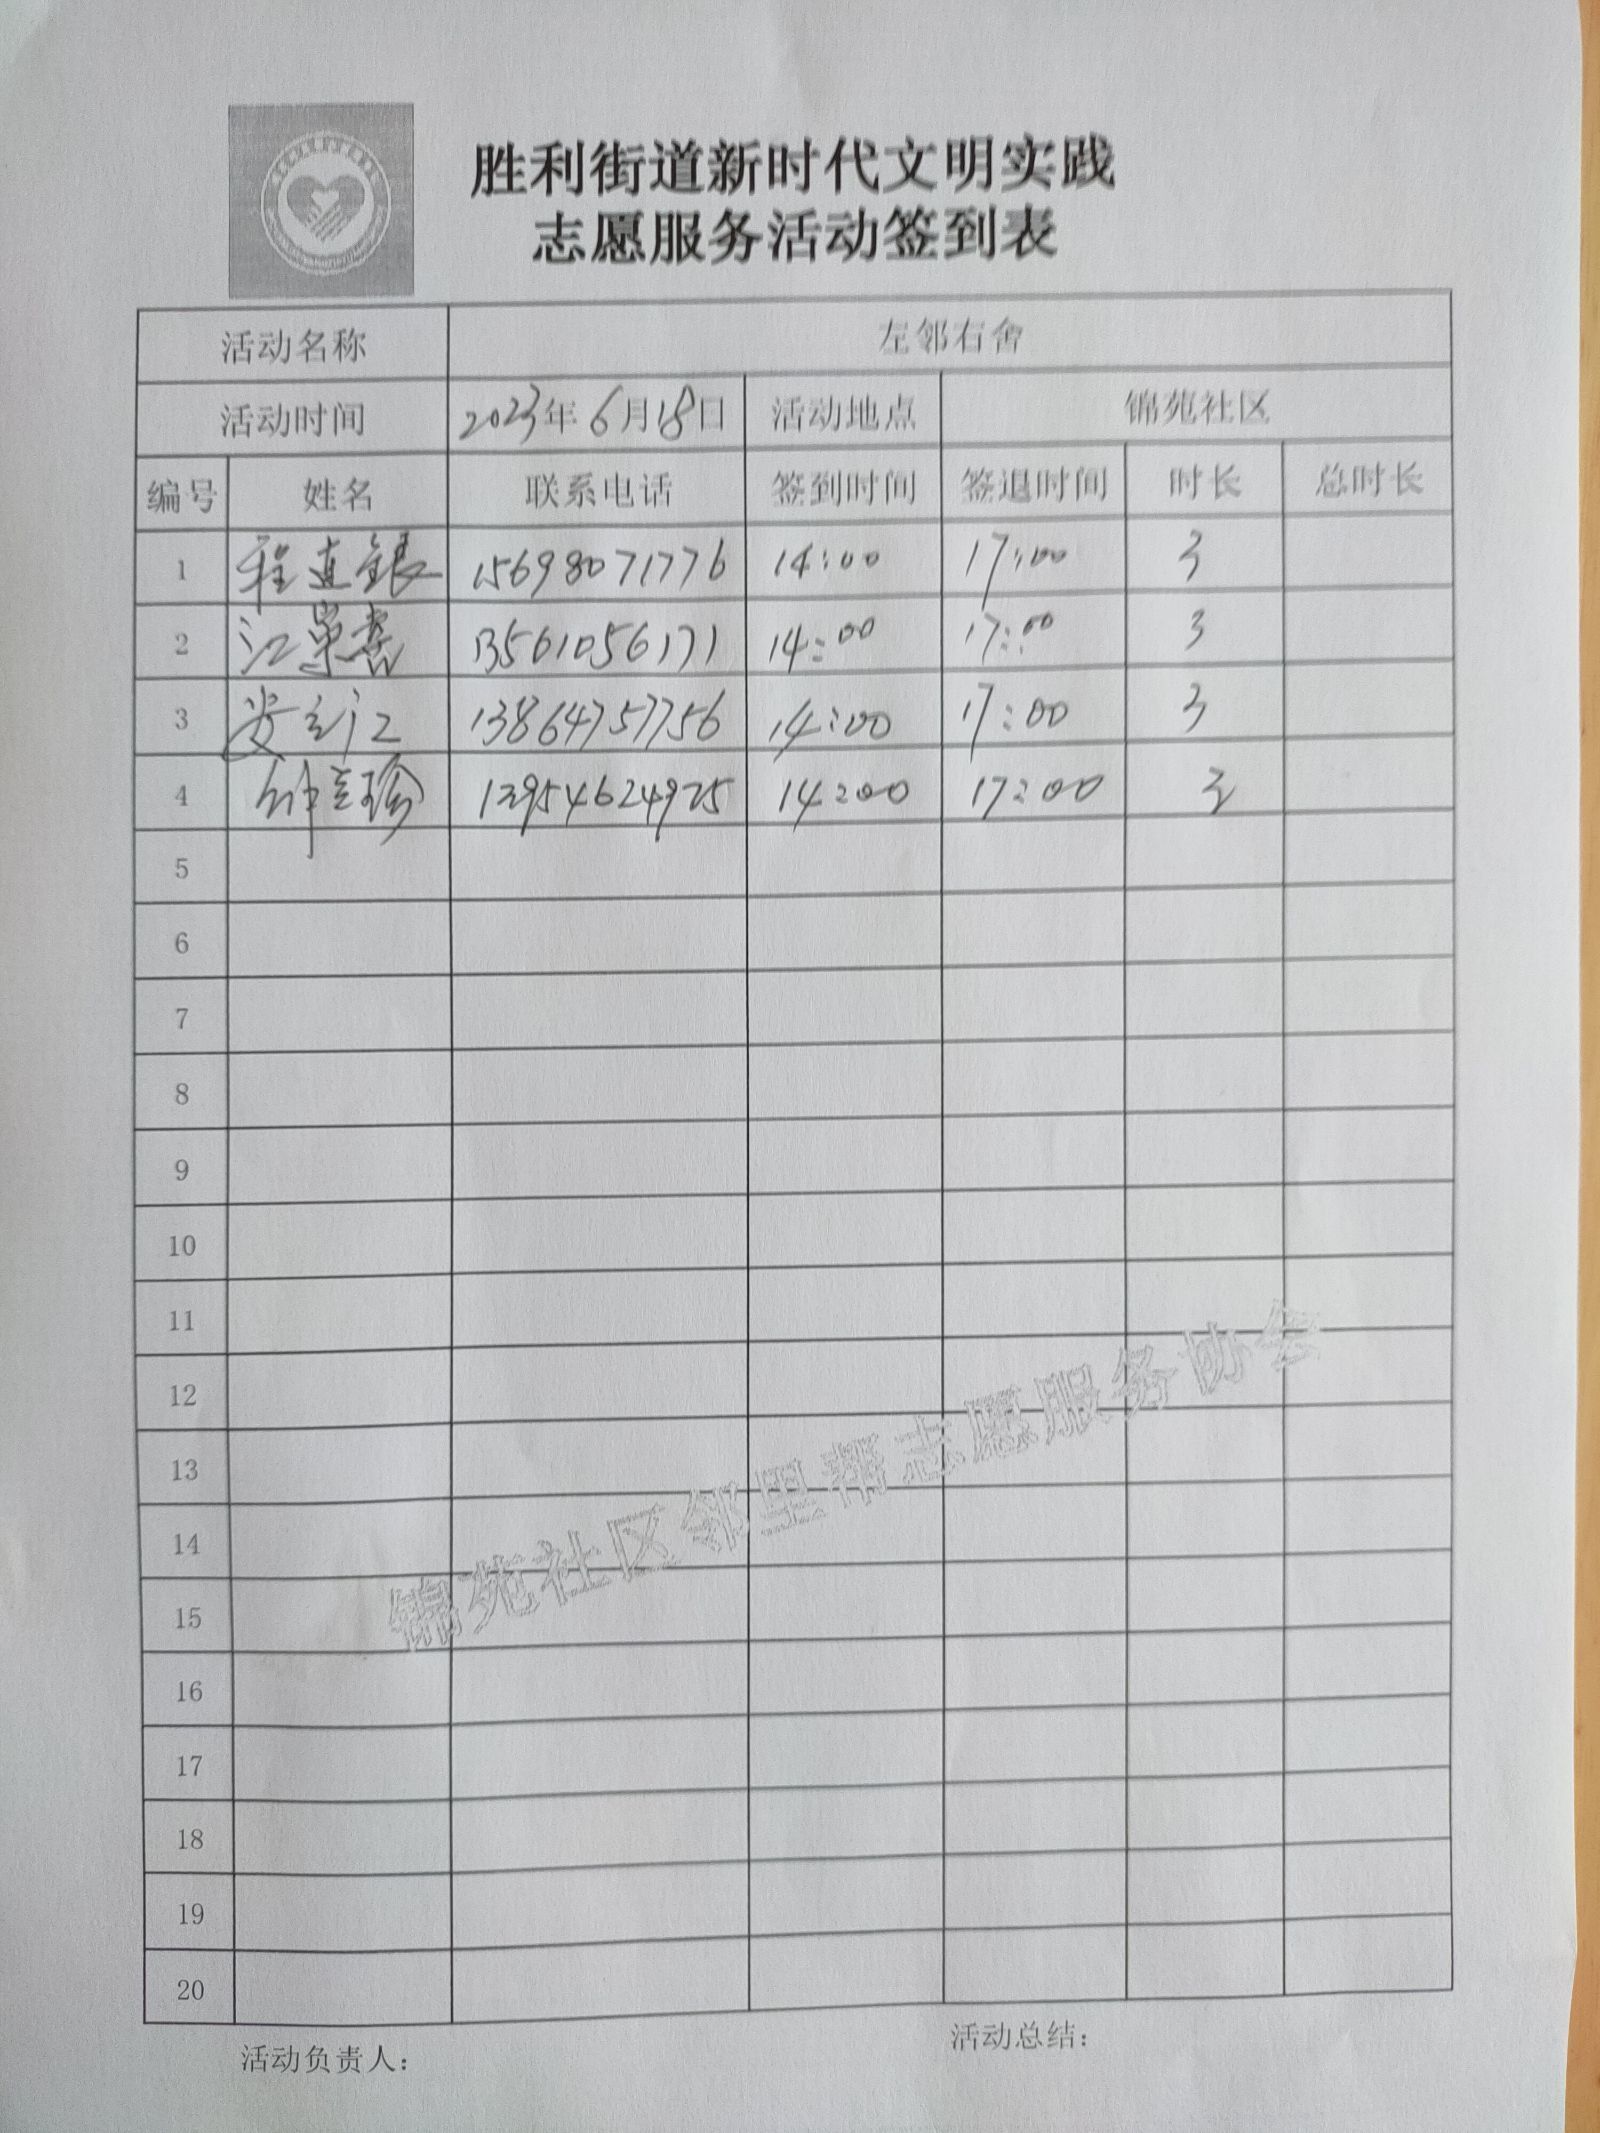 胜利街道新时代文明实践
志愿服务活动签到表
活动名称 左邻右舍
活动时间 2023年6月18日 活动地点 锦苑社区
编号 姓名 联系电话 签到时间 签退时间 时长 总时长
1 程道银 15698071776 14:00 17:00 3
2 江崇喜 13561056171 14:00 17:00 3
3 安立江 13864757756 14:00 17:00 3
4 钟立珍 13954624925 14:00 17:00 3
5
6
7
8
9
10
11
12
13
14
15
16
17
18
19
20
锦苑社区邻里帮志愿服务协会
活动负责人： 活动总结：